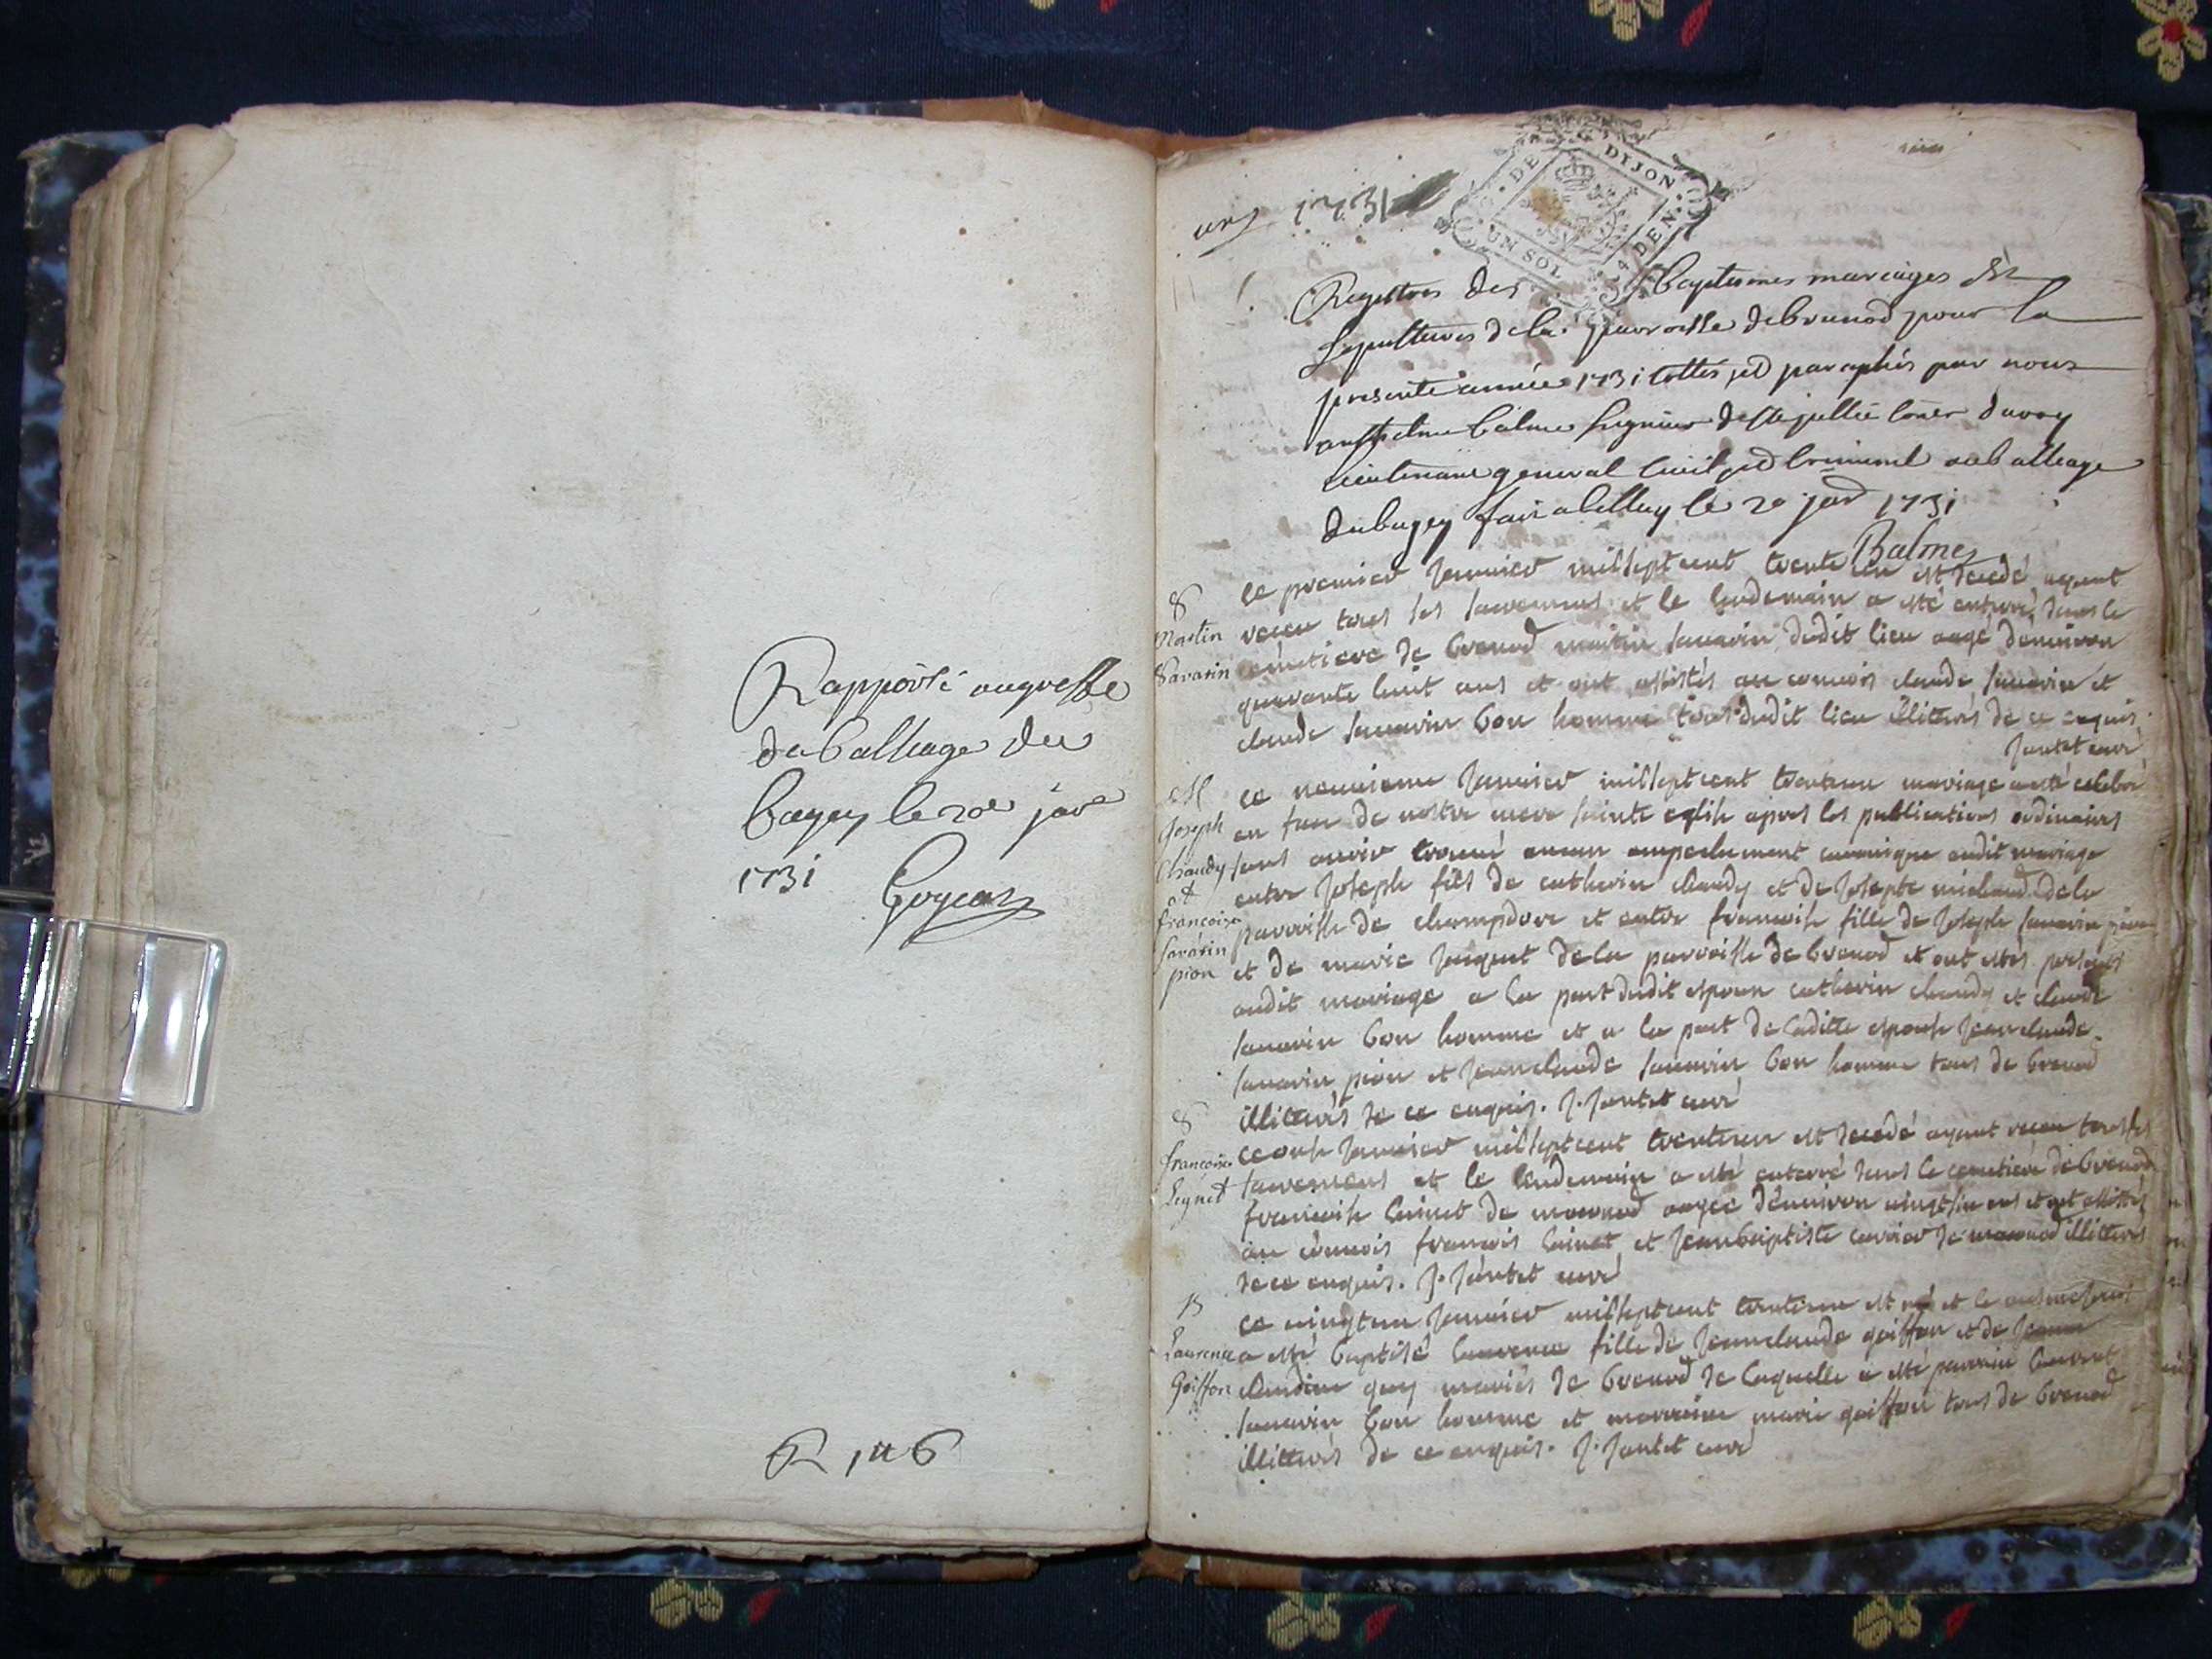 Rapporté au greffe
du balliage du
bugey le 20e janr
1731
R 1 6
1731
DE DIJON
UN SOL 4 DEN.
Registres des baptismes mariages et
sepultures de la parroisse de brenod pour la
presente année 1731 cottés et paraphés par nous
anthelme balme seigneur de Ste jullie coner du roy
lieutenant general civil et criminel au balliage
du bugey fait a belley le 20 janr 1731
Balme
S
Martin
Savarin
ce premier janvier mil sept cent trente un est decedé ayant
receu tous ses sacremens et le lendemain a esté enterré dans le
cemetiere de brenod martin savarin dudit lieu aagé d'environ
quarante huit ans et ont assistés au convois claude savarin et
claude savarin bon homme tous dudit lieu illiterés de ce enquis.
Jantet curé
M
Joseph
Chaudy
et
francoise
savarin
pion
ce neuvieme janvier mil sept cent trenteun mariage a esté celebré
en face de nostre mere sainte eglise apres les publications ordinaires
sans avoir trouvé aucun empechement canonique audit mariage
entre Joseph fils de catherin chaudy et de Josepte michaud de la
parroisse de champdore et entre francoise fille de Joseph savarin pion
et de marie Jacquet de la parroisse de brenod et ont estés presents
audit mariage a la part dudit espoux catherin chaudy et claude
savarin bon homme et a la part de laditte espouse Jean claude
savarin pion et Jean claude savarin bon homme tous de brenod
illiterés de ce enquis. J. Jantet curé
S
francoise
ce onse janvier mil sept cent trenteun est decedé ayant receu tous ses
sacremens et le lendemain a esté enterré dans le cemetiere de brenod
francoise de macornod aagee d'environ vingt six ans et ont assistés
au convois francois et Jean baptiste carrier de macornod illiterés
de ce enquis. J. Jantet curé
B
Laurence
Goiffon
ce vingtun janvier mil sept cent trenteun est né et le mesme jour
a esté baptisé laurence fille de Jean claude goiffon et de Jeanne
claudine guy mariés de brenod de laquelle a esté parrain laurent
savarin bon homme et marraine marie goiffon tous de brenod
illiterés de ce enquis. J. Jantet curé